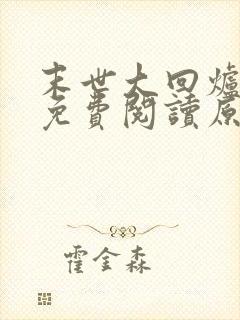 末世大回爐
免費閱讀原
霍金森